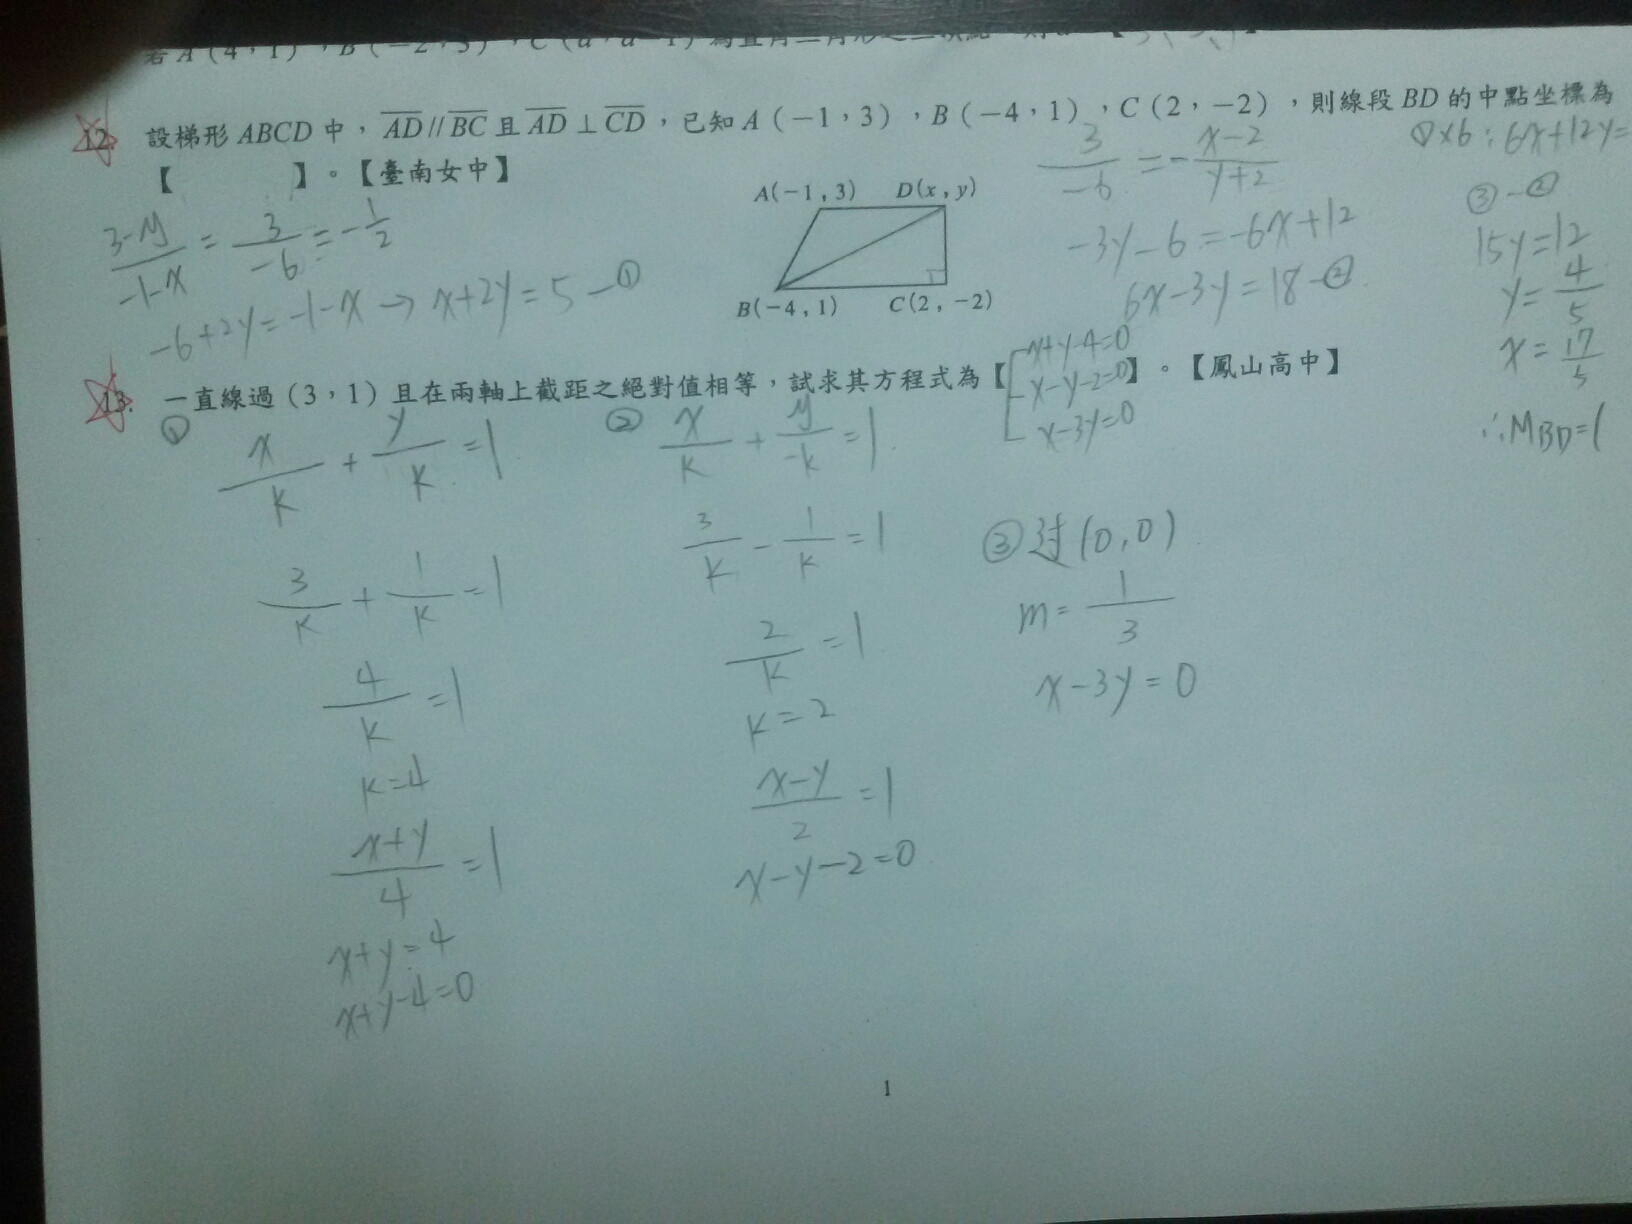 若 A(4,1),B(-2,3),C(a,a-1)為直角三角形之三頂點
12. 設梯形 ABCD 中,AD//BC 且 AD⊥CD,已知 A(-1,3),B(-4,1),C(2,-2),則線段 BD 的中點坐標為
【 】。【臺南女中】
A(-1,3) D(x,y)
B(-4,1) C(2,-2)
3-y/-1-x = 3/-6 = -1/2
-6+2y=-1-x → x+2y=5 —①
3/-6 = -x-2/y+2
-3y-6=-6x+12
6x-3y=18 —②
①×6:6x+12y=
③-②
15y=12
y=4/5
x=17/5
∴MBD=(
13. 一直線過(3,1)且在兩軸上截距之絕對值相等,試求其方程式為【x+y-4=0
x-y-2=0】。【鳳山高中】
x-3y=0
①
x/k + y/k =1
3/k + 1/k =1
4/k =1
k=4
x+y/4 =1
x+y=4
x+y-4=0
②
x/k + y/-k =1
3/k - 1/k =1
2/k =1
k=2
x-y/2 =1
x-y-2=0
③过(0,0)
m=1/3
x-3y=0
1